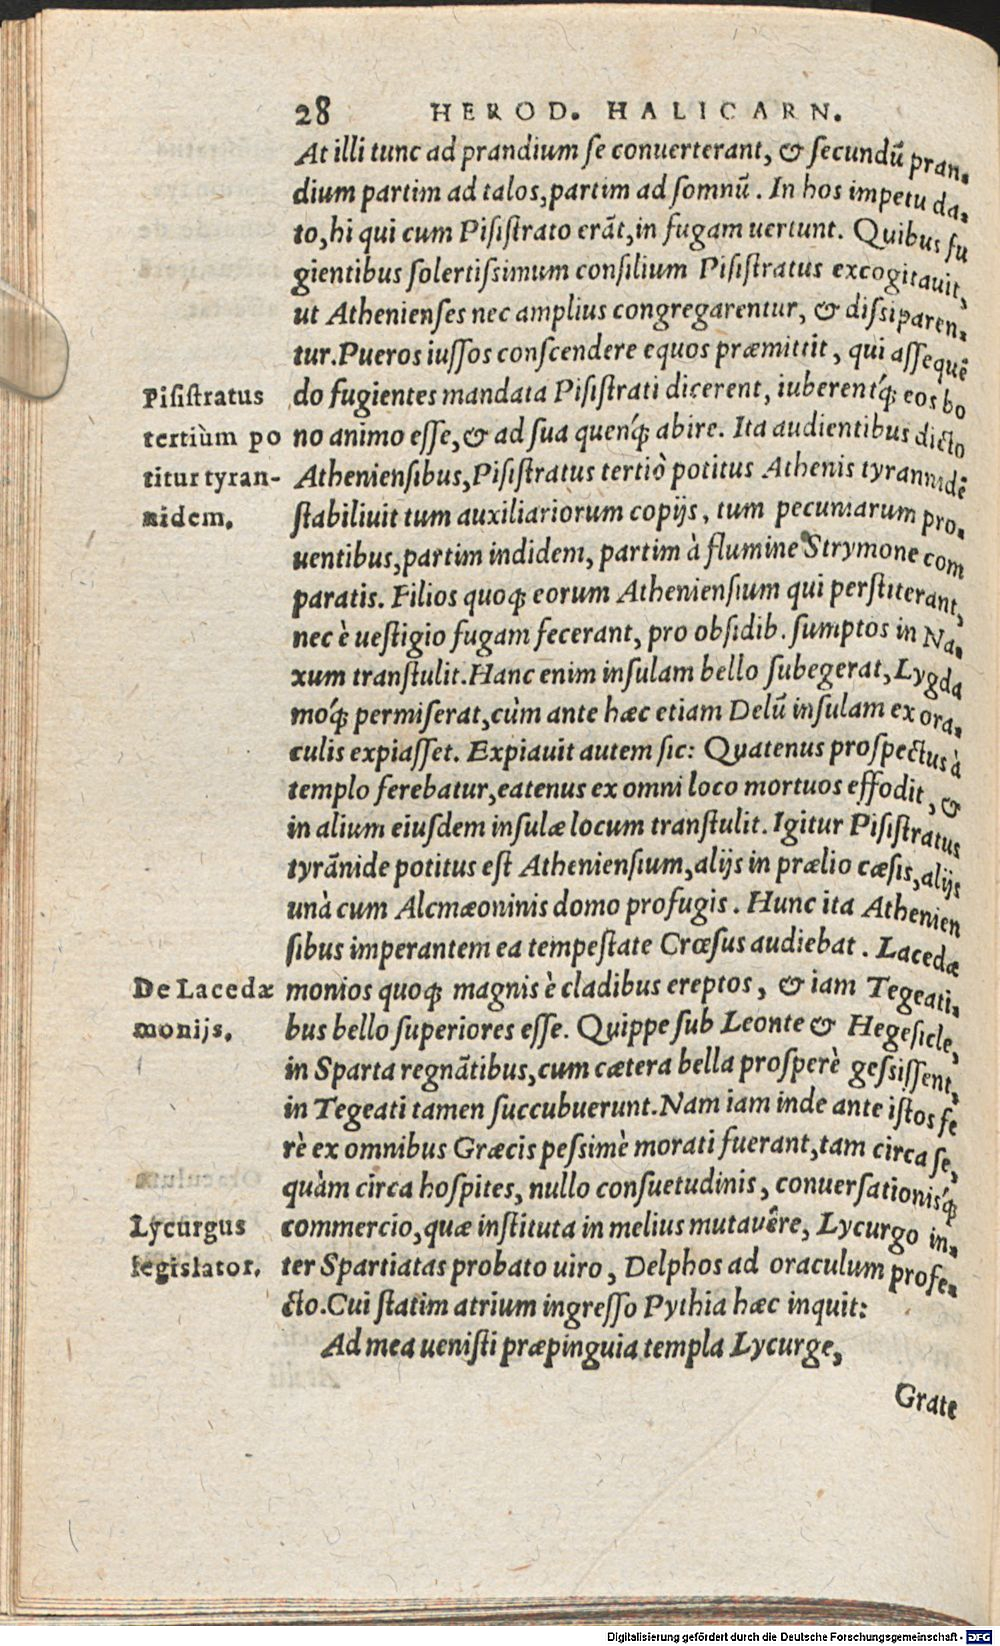 28 HEROD. HALICARN.
At illi tunc ad prandium ſe conuerterant, & ſecundū pran-
dium partim ad talos, partim ad ſomnū. In hos impetu da-
to, hi qui cum Piſiſtrato erāt, in fugam uertunt. Quibus fu
gientibus ſolertiſsimum conſilium Piſiſtratus excogitauit,
ut Athenienſes nec amplius congregarentur, & diſsiparen-
tur. Pueros iuſſos conſcendere equos præmittit, qui aſſequē
do fugientes mandata Piſiſtrati dicerent, iuberentq́; eos bo
no animo eſſe, & ad ſua quenq́; abire. Ita audientibus dicto
Athenienſibus, Piſiſtratus tertiò potitus Athenis tyrannidē
ſtabiliuit tum auxiliariorum copijs, tum pecuniarum pro-
uentibus, partim indidem, partim à flumine Strymone com
paratis. Filios quoq; eorum Athenienſium qui perſtiterant,
nec è ueſtigio fugam fecerant, pro obſidib. ſumptos in Na-
xum tranſtulit. Hanc enim inſulam bello ſubegerat, Lygda
moq́; permiſerat, cùm ante hæc etiam Delū inſulam ex ora-
culis expiaſſet. Expiauit autem ſic: Quatenus proſpectus à
templo ferebatur, eatenus ex omni loco mortuos effodit, &
in alium eiuſdem inſulæ locum tranſtulit. Igitur Piſiſtratus
tyrānide potitus eſt Athenienſium, alijs in prælio cæſis, alijs
unà cum Alcmæoninis domo profugis. Hunc ita Athenien
ſibus imperantem ea tempeſtate Crœſus audiebat. Lacedæ
monios quoq; magnis è cladibus ereptos, & iam Tegeati-
bus bello ſuperiores eſſe. Quippe ſub Leonte & Hegeſicle,
in Sparta regnātibus, cum cætera bella proſperè geſsiſſent,
in Tegeati tamen ſuccubuerunt. Nam iam inde ante iſtos fe
rè ex omnibus Græcis peſsimè morati fuerant, tam circa ſe,
quàm circa hoſpites, nullo conſuetudinis, conuerſationisq́;
commercio, quæ inſtituta in melius mutauêre, Lycurgo in-
ter Spartiatas probato uiro, Delphos ad oraculum profe-
cto. Cui ſtatim atrium ingreſſo Pythia hæc inquit:
Ad mea ueniſti præpinguia templa Lycurge,
Grate
Piſiſtratus
tertiùm po
titur tyran-
nidem.
De Lacedæ
monijs.
Lycurgus
legislator.
Digitalisierung gefördert durch die Deutsche Forschungsgemeinschaft - DFG